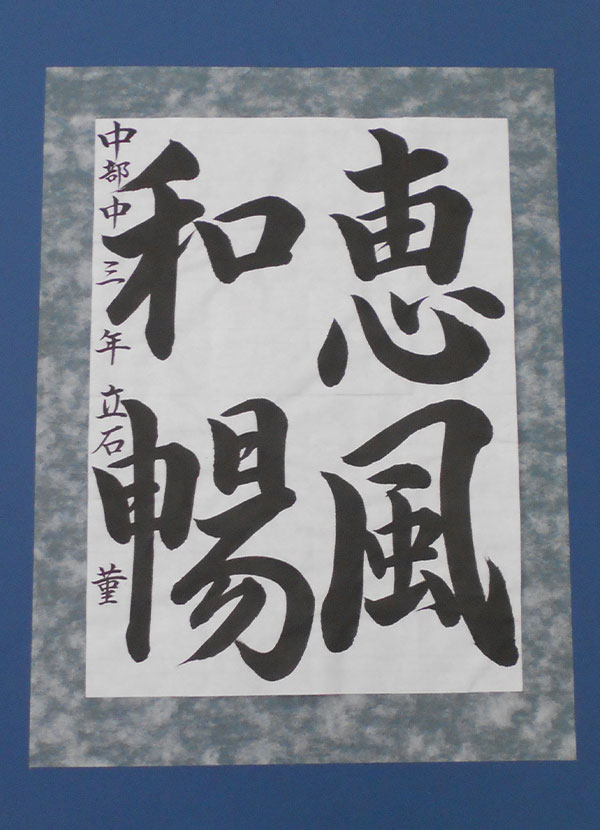 恵風
和暢
中部中三年立石菫